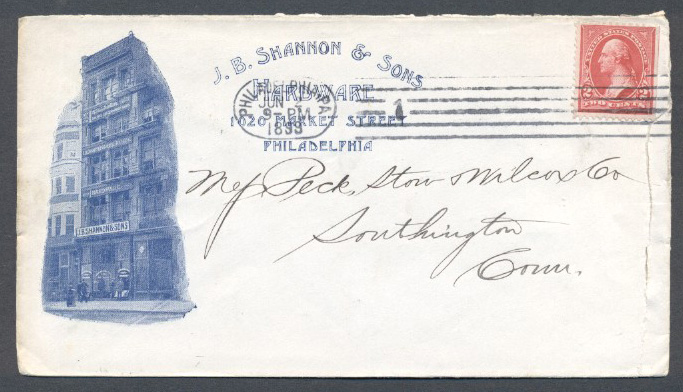 J. B. SHANNON & SONS
HARDWARE
1020 MARKET STREET
PHILADELPHIA
PHILADELPHIA, PA.
JUN
9-PM
1899
1
TWO CENTS
Mess Peck, Stow & Wilcox Co
Southington
Conn.
J.B. SHANNON & SONS